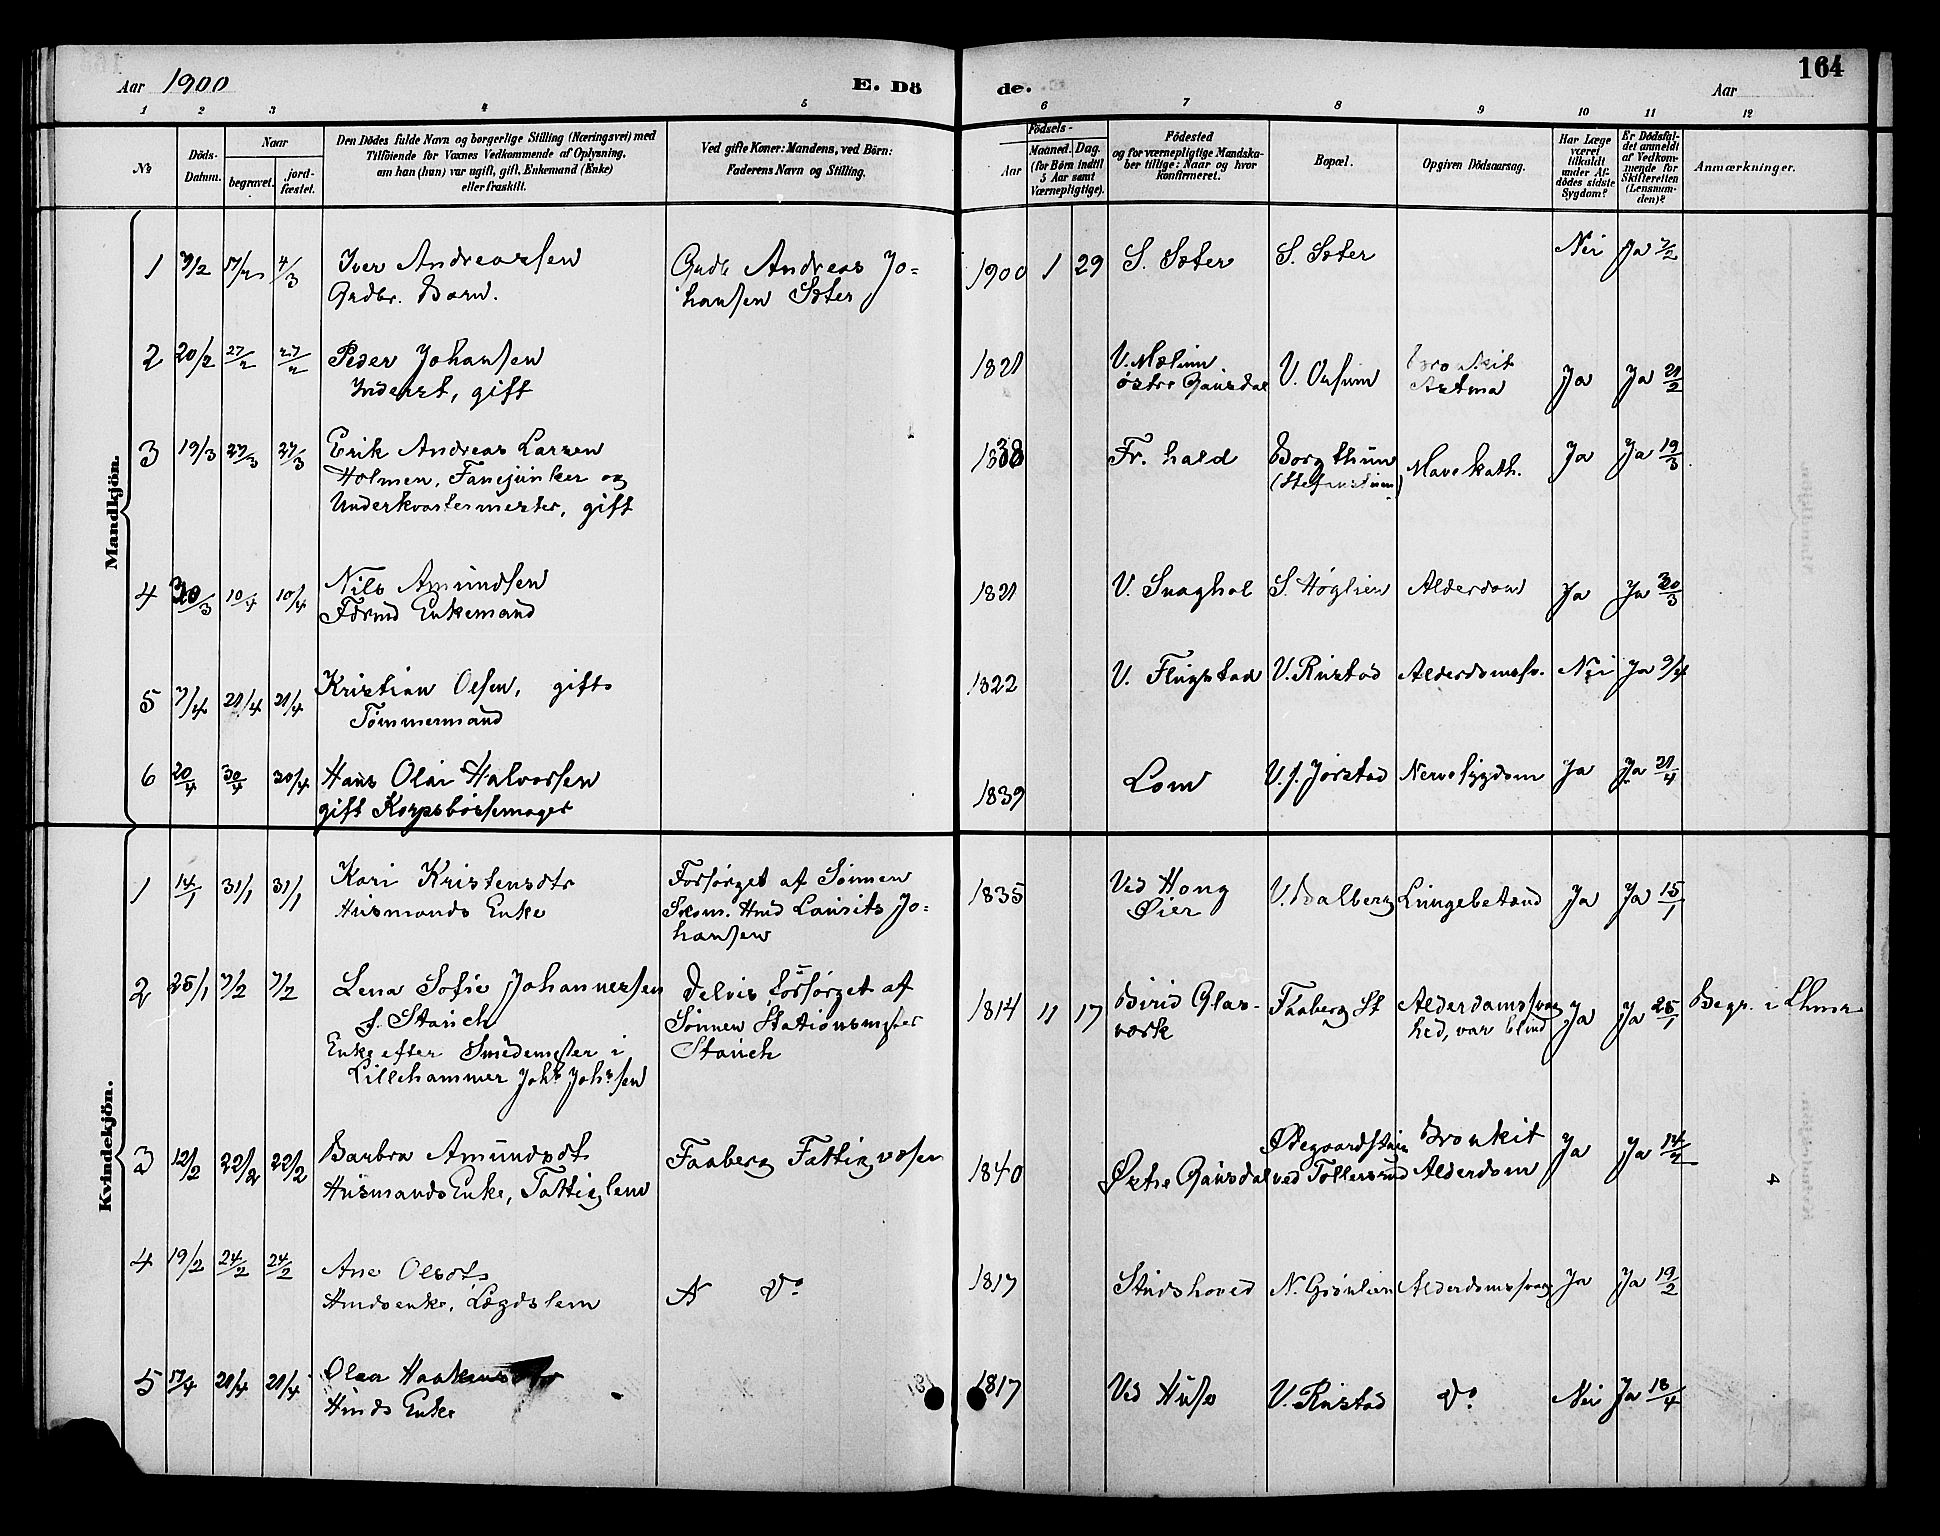 Aar 1900 E. Dö
de. Aar 164
1 2 3 4 5 6 7 8 9 10 11 12
No
Döds-Datum.
Naar
begravet.
jord-fæstet.
Den Dödes fulde Navn og borgerlige Stilling (Næringsvei) med
Tilföiende for Voxnes Vedkommende af Oplysning,
om han (hun) var ugift, gift, Enkemand (Enke)
eller fraskilt.
Ved gifte Koner: Mandens, ved Börn:
Faderens Navn og Stilling.
Födsels-
Aar
Maaned. Dag.
(for Börn indtil
5 Aar samt
Værnepligtige).
Födested
og for værnepligtige Mandska-
ber tillige: Naar og hvor
konfirmeret.
Bopæl.
Opgiven Dödsaarsag.
Har Læge
været
tilkaldt
under Af-
dödes sidste
Sygdom?
Er Dödsfal-
det anmeldt
af Vedkom-
mende for
Skifteretten
(Lensman-
den)?
Anmærkninger.
Mandkjön.
1 7/2 17/2 4/3 Iver Andreassen
Grdbr. Barn.
Grdb Andreas Jo-
hansen Sæter
1900 1 29 S. Sæter S. Sæter Nei Ja 7/2
2 20/2 27/2 27/2 Peder Johansen
Inderst, gift
1821 V. Mælum
østre Gausdal V. Onsum Bronkit
Astma Ja Ja 21/2
3 19/3 27/3 27/3 Erik Andreas Larsen
Holmen, Fanejunker og
Underkvartermester, gift
1838 Fr. hald Borgthun Mavekath. Ja Ja 19/3
4 30/3 10/4 10/4 Nils Amundsen
Formd Enkemand
1821 V. Svaghol S. Høglien Alderdom Ja Ja 30/3
5 7/4 21/4 21/4 Kristian Olsen, gift
Tømmermand
1822 V. Flugstad V. Rustad Alderdomssv. Nei Ja 9/4
6 20/4 30/4 30/4 Hans Olai Halvorsen
gift Korpsbøssemager
1839 Lom V. f. Jørstad Nervesygdom Ja Ja 21/4
Kvindekjön.
1 14/1 31/1 31/1 Kari Kristensdtr
Husmands Enke
Forsørget af Sønnen
Skom. Hmd Laurits Jo-
hansen
1835 Ved Hong
Øier V. Dalberg Lungebetænd Ja Ja 15/1
2 25/1 7/2 7/2 Lena Sofie Johannessen
f. Stauch
Enke efter Smedemester i
Lillehammer Johs Johssen
Delvis forsørget af
Sønnen Stationsmester
Stauch
1814 11 17 Birid Glas-
værk Faaberg St Alderdomssvag
hed, var blind Ja Ja 25/1 Begr. i Lhmr
3 12/2 22/2 22/2 Barbra Amundsdt
Husmands Enke, Fattiglem
Faaberg Fattigvæsen
1840 Østre Gausdal Ødegaardstuen
ved Tollersrud Bronkit
Alderdom Ja Ja 14/2
4 19/2 24/2 24/2 Ane Olsdtr
Hmdsenke, Lægdslem
Do
1817 Studshoved N. Grønlien Alderdomssvag Ja Ja 19/2
5 17/4 21/4 21/4 Olea Haakensdtr
Hmds Enke
1817 Ved Huse V. Rustad Do Nei Ja 18/4